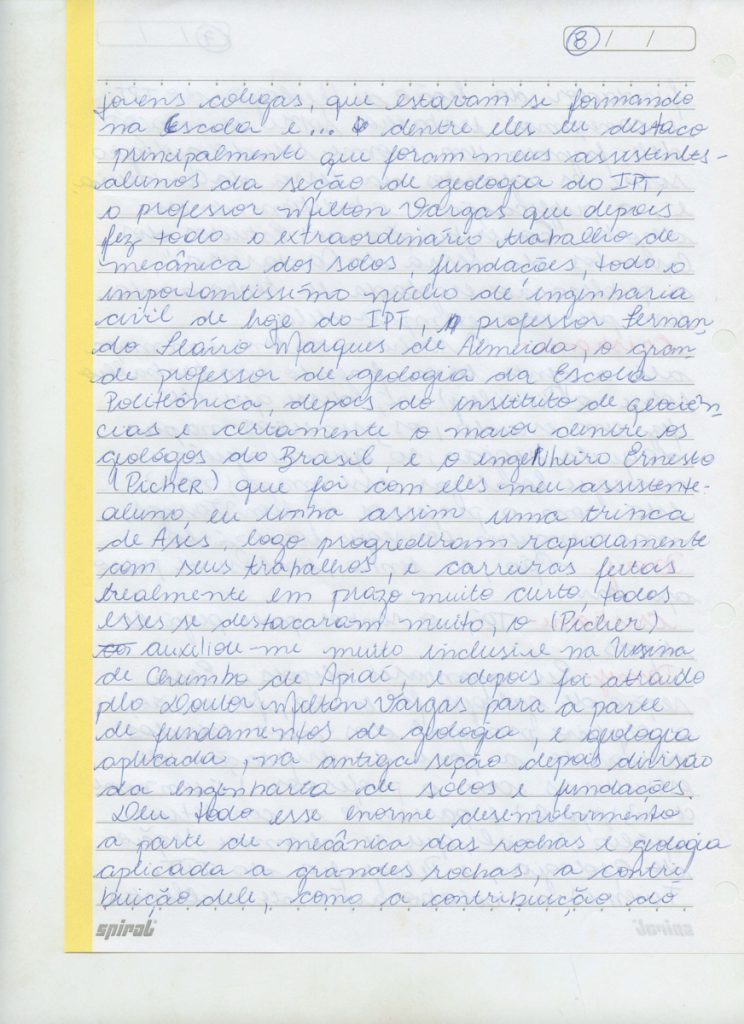 8 / /
jovens colegas, que estavam se formando
na Escola e... dentre eles eu destaco
principalmente que foram meus assistentes-
alunos da seção de geologia do IPT,
o professor Milton Vargas que depois
fez todo o extraordinário trabalho de
mecânica dos solos, fundações, todo o
importantissimo núcleo de engenharia
civil de hoje do IPT, professor Fernan-
do Flávio Marques de Almeida, o gran-
de professor de geologia da Escola
Politécnica, depois do instituto de geociên-
cias e certamente o maior dentre os
geológos do Brasil, e o engenheiro Ernesto
(Picher) que foi com eles meu assistente-
aluno, eu tinha assim uma trinca
de Ases, logo progrediram rapidamente
com seus trabalhos, e carreiras feitas
realmente em prazo muito curto, todos
esses se destacaram muito, o (Picher)
auxiliou-me muito inclusive na Usina
de Chumbo de Apiaí, e depois foi atraído
plo Doutor Milton Vargas para a parte
de fundamentos de geologia, e geologia
aplicada, na antiga seção depois divisão
da engenharia de solos e fundações.
Deu todo esse enorme desenvolvimento
a parte de mecânica das rochas e geologia
aplicada a grandes rochas, a contri
buição dele, como a contribuição do
spiral